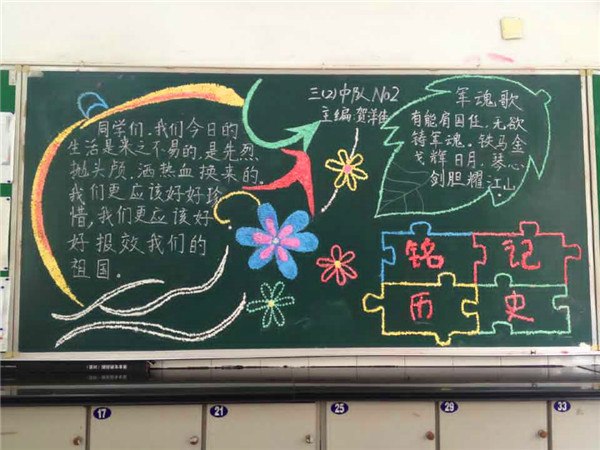 同学们.我们今日的
生活是来之不易的.是先烈
抛头颅.洒热血换来的.
我们更应该好好珍
惜,我们更应该好
好报效我们的
祖国。
三(2)中队 No2
主编:贺洋佳
军魂歌
有能有国任,无欲
铸军魂。铁马金
戈辉日月,琴心
剑胆耀江山.
铭记
历史
17
21
25
29
33